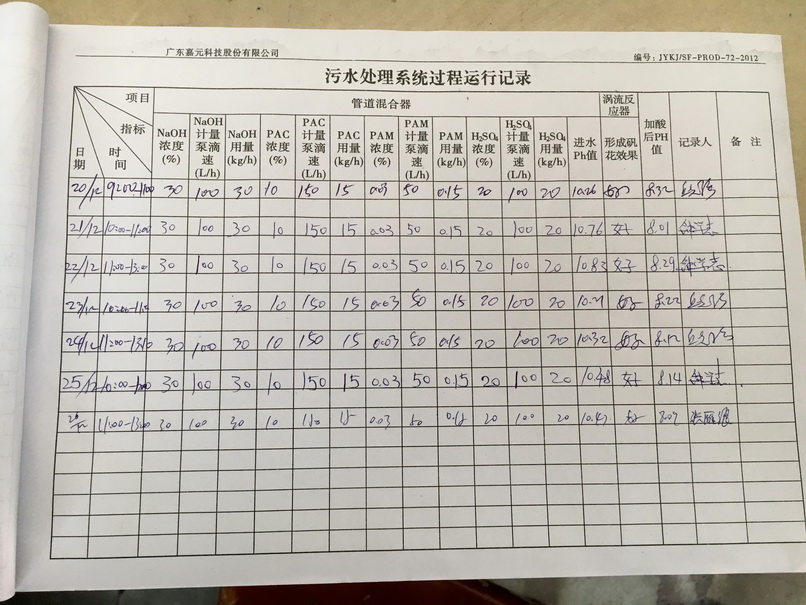 广东嘉元科技股份有限公司
编号：JYKJ/SF-PROD-72-2012
污水处理系统过程运行记录
项目 指标 日期 时间 管道混合器 涡流反应器 加酸后PH值 记录人 备 注
NaOH浓度(%) NaOH计量泵滴速(L/h) NaOH用量(kg/h) PAC浓度(%) PAC计量泵滴速(L/h) PAC用量(kg/h) PAM浓度(%) PAM计量泵滴速(L/h) PAM用量(kg/h) H₂SO₄浓度(%) H₂SO₄计量泵滴速(L/h) H₂SO₄用量(kg/h) 进水Ph值 形成矾花效果
20/12 30 100 30 10 150 15 0.03 50 0.15 20 100 20 10.26 好 8.32
21/12 10:00-11:00 30 100 30 10 150 15 0.03 50 0.15 20 100 20 10.76 好 8.01
22/12 11:00-13:00 30 100 30 10 150 15 0.03 50 0.15 20 100 20 10.83 好 8.29
23/12 30 100 30 10 150 15 0.03 50 0.15 20 100 20 好 8.22
24/12 30 100 30 10 150 15 0.03 50 0.15 20 100 20 10.32 好 8.12
25/12 30 100 30 10 150 15 0.03 50 0.15 20 100 20 10.48 好 8.14
11:00-13:00 30 100 30 10 150 15 0.03 50 0.15 20 100 20 10.47 好